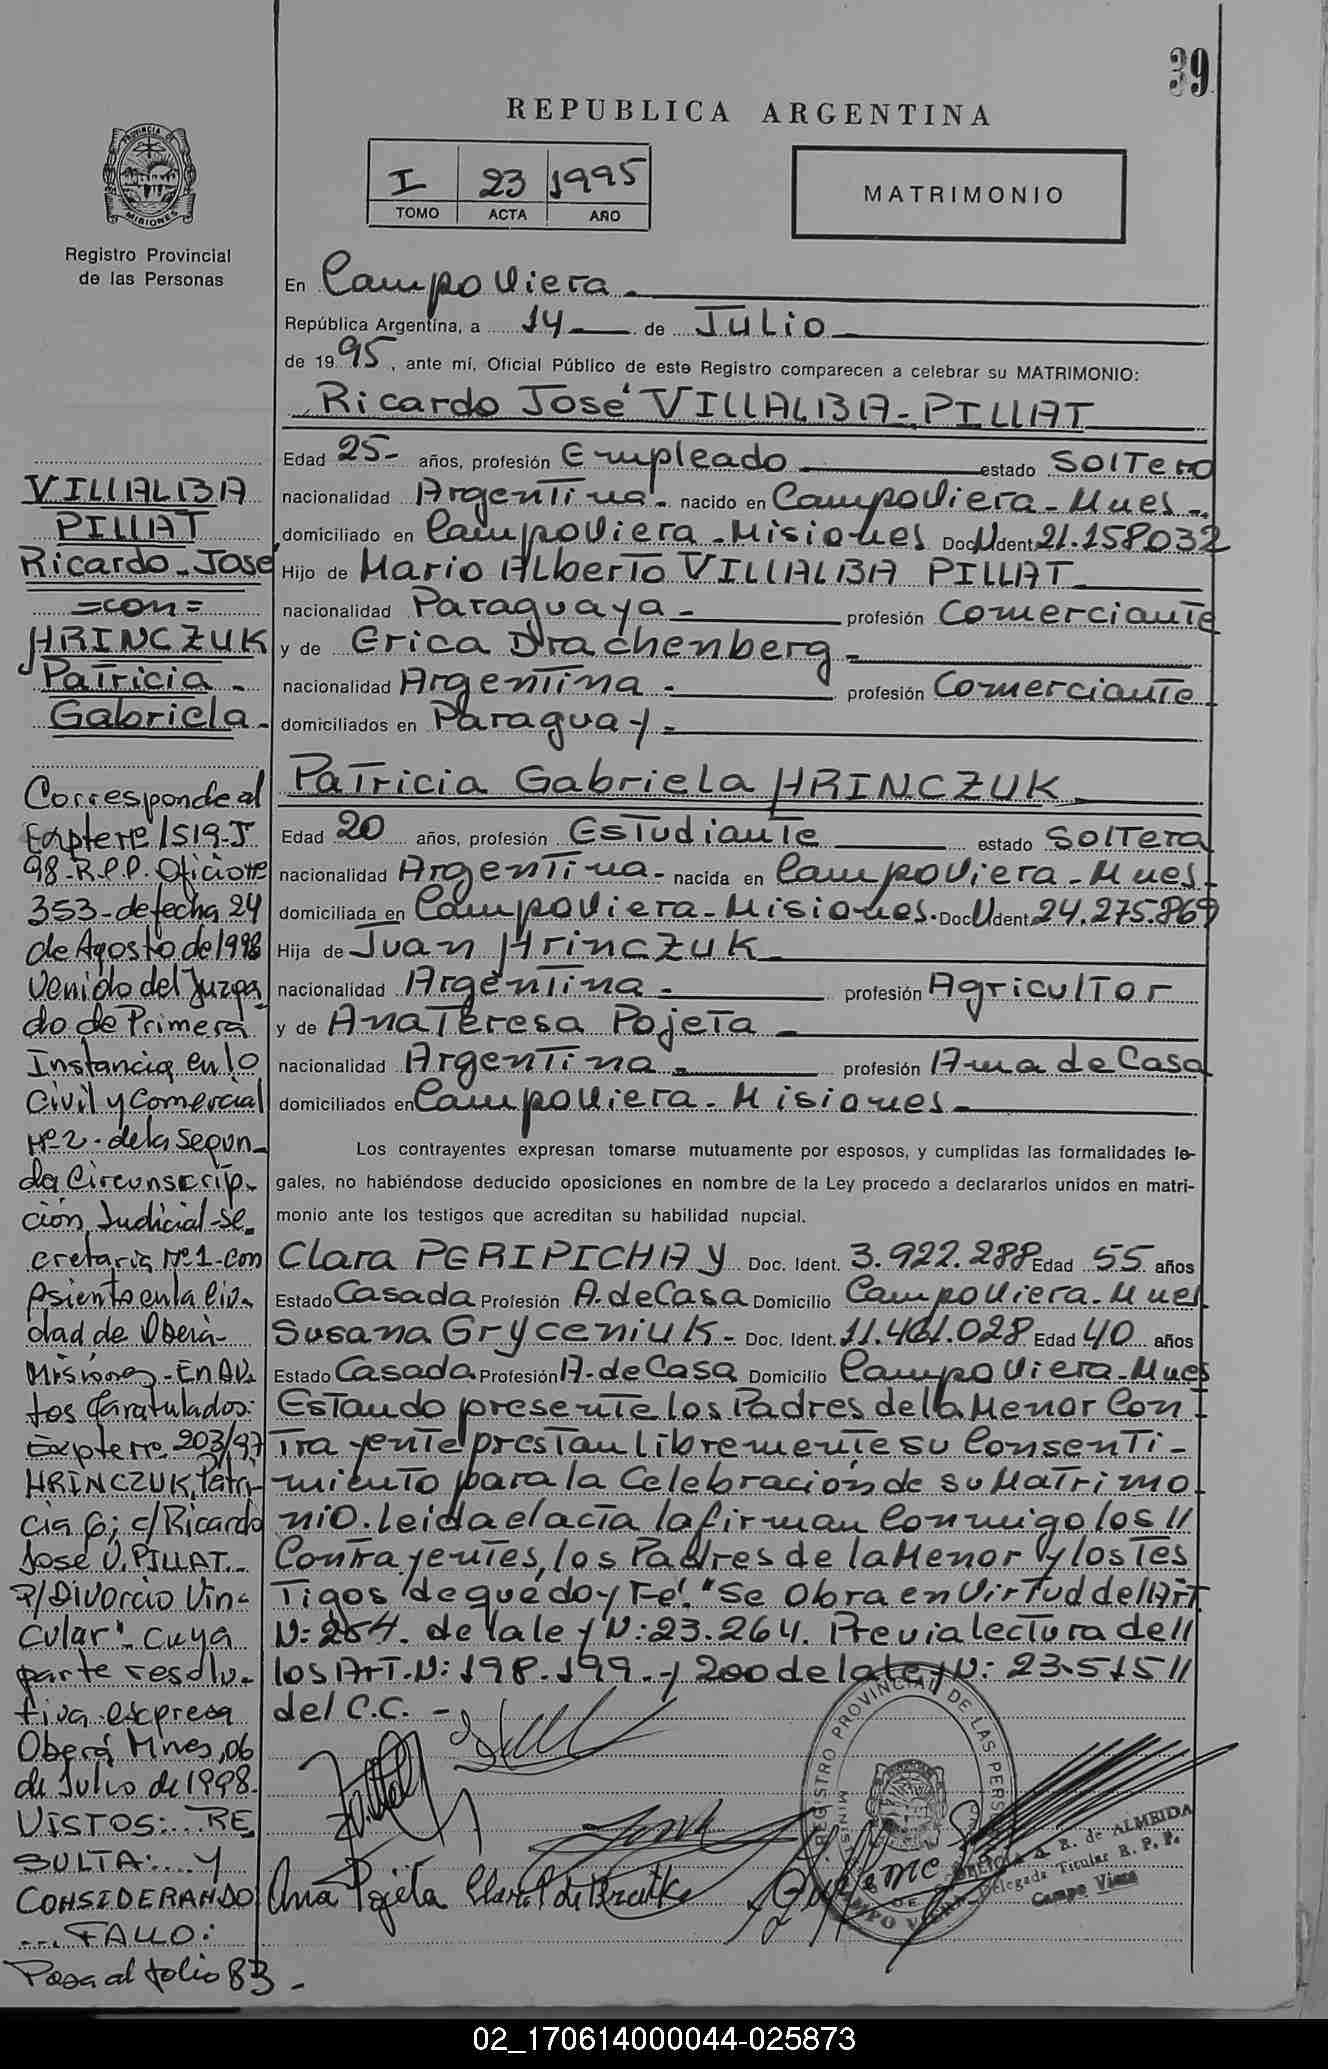 39
REPUBLICA ARGENTINA
I 23 1995
TOMO ACTA AÑO
MATRIMONIO
PROVINCIA DE MISIONES
Registro Provincial
de las Personas
En Campo Viera.
República Argentina, a 14 de Julio
de 1995, ante mí, Oficial Público de este Registro comparecen a celebrar su MATRIMONIO:
Ricardo José VILLALBA-PILLAT
Edad 25- años, profesión Empleado estado Soltero
nacionalidad Argentina.- nacido en Campo Viera-Mnes-.
domiciliado en Campo Viera-Misiones Doc U Ident 21.158032
Hijo de Mario Alberto VILLALBA PILLAT
nacionalidad Paraguaya- profesión Comerciante
y de Erica Drachenberg-
nacionalidad Argentina- profesión Comerciante
domiciliados en Paraguay-
Patricia Gabriela HRINCZUK
Edad 20 años, profesión Estudiante estado Soltera
nacionalidad Argentina- nacida en Campo Viera-Mnes-
domiciliada en Campo Viera-Misiones. Doc U Ident 24.275.869
Hija de Juan Hrinczuk
nacionalidad Argentina- profesión Agricultor
y de Ana Teresa Pojeta
nacionalidad Argentina- profesión Ama de Casa
domiciliados en Campo Viera-Misiones-
Los contrayentes expresan tomarse mutuamente por esposos, y cumplidas las formalidades le-
gales, no habiéndose deducido oposiciones en nombre de la Ley procedo a declararlos unidos en matri-
monio ante los testigos que acreditan su habilidad nupcial.
Clara PERIPICHAY Doc. Ident. 3.922.288 Edad 55 años
Estado Casada Profesión A. de Casa Domicilio Campo Viera-Mnes
Susana Gryceniuk- Doc. Ident. 11.461.028 Edad 40 años
Estado Casada Profesión A. de Casa Domicilio Campo Viera-Mnes
Estando presente los Padres de la Menor Con-
trayente prestan libremente su Consenti-
miento para la Celebración de su Matrimo
nio. Leida el acta la firman Conmigo los //
Contrayentes, los Padres de la Menor y los Tes
tigos de que doy Fe. "Se Obra en Virtud del Art
N: 264. de la ley N: 23.264. Previa lectura de //
los Art. N: 198. 199. y 200 de la ley N: 23.515 //
del C.C. -
Ana Pojeta
REGISTRO PROVINCIAL DE LAS PERS
CAMPO VIERA
A R. de ALMEIDA
Delegada Titular R. P. P.
Campo Viera
VILLALBA
PILLAT
Ricardo-José
=con=
HRINCZUK
Patricia-
Gabriela-
Corresponde al
Expte nº 1519-J
98-R.P.P. Oficio nº
353-de fecha 24
de Agosto de 1998
Venido del Juzga
do de Primera
Instancia en lo
Civil y Comercial
Nº 2- de la Segun-
da Circunscrip-
ción Judicial-Se-
cretaria Nº 1-con
Asiento en la Ciu-
dad de Oberá-
Misiones-En Au-
tos Caratulados:
Expte nº 203/97
HRINCZUK, Patri-
cia G; c/Ricardo
José V. PILLAT-
P/Divorcio Vin-
cular"- cuya
parte resolu-
tiva expresa
Oberá Mnes, 06
de Julio de 1998.
VISTOS:...RE
SULTA:....Y
CONSIDERANDO
....FALLO:
Pasa al folio 83-
02_170614000044-025873